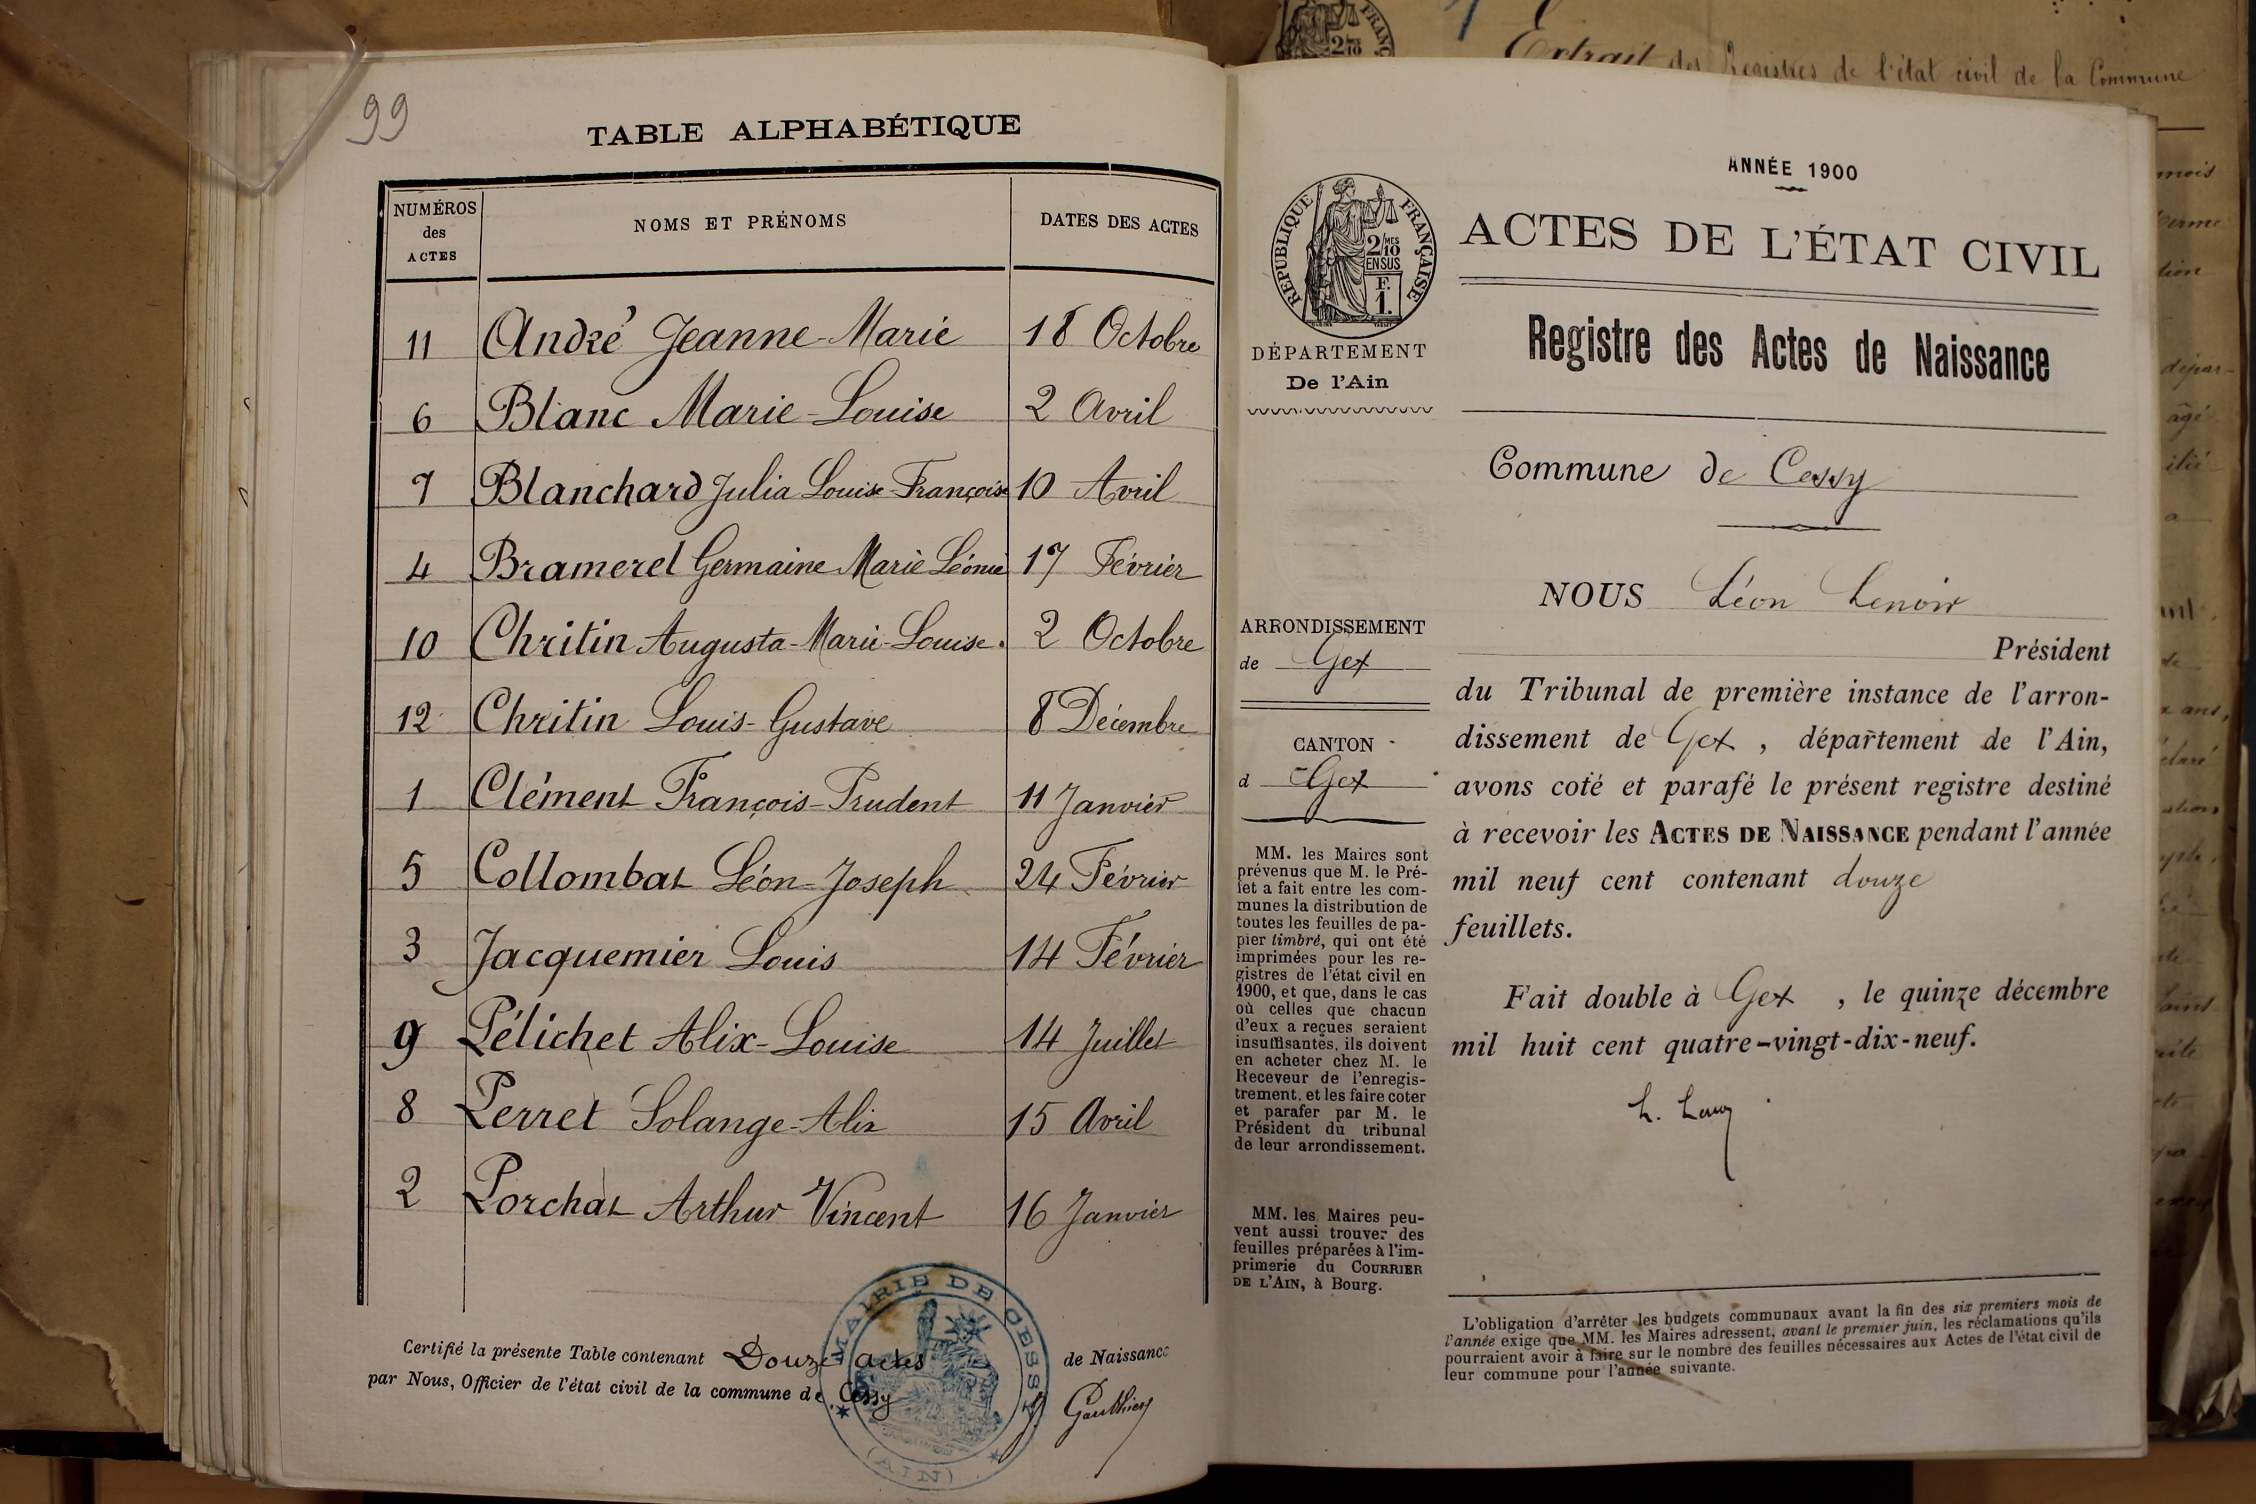 99
TABLE ALPHABÉTIQUE
NUMÉROS des ACTES NOMS ET PRÉNOMS DATES DES ACTES
11 André Jeanne-Marie 18 Octobre
6 Blanc Marie-Louise 2 Avril
7 Blanchard Julia Louise Françoise 10 Avril
4 Bramerel Germaine Marie Léonie 17 Février
10 Chritin Augusta-Marie-Louise. 2 Octobre
12 Chritin Louis-Gustave 8 Décembre
1 Clément François-Prudent 11 Janvier
5 Collombat Léon-Joseph 24 Février
3 Jacquemier Louis 14 Février
9 Pélichet Alix-Louise 14 Juillet
8 Perret Solange-Alix 15 Avril
2 Porchat Arthur Vincent 16 Janvier
Certifié la présente Table contenant Douze actes de Naissance
par Nous, Officier de l'état civil de la commune de Cessy
MAIRIE DE CESSY
(AIN)
Gauthier
Extrait des Registres de l'état civil de la Commune
ANNÉE 1900
RÉPUBLIQUE FRANÇAISE
2/10 MES
EN SUS
F.
1.
ACTES DE L'ÉTAT CIVIL
DÉPARTEMENT
De l'Ain
Registre des Actes de Naissance
Commune de Cessy
NOUS Léon Lenoir
Président
du Tribunal de première instance de l'arron-
dissement de Gex, département de l'Ain,
avons coté et parafé le présent registre destiné
à recevoir les ACTES DE NAISSANCE pendant l'année
mil neuf cent contenant douze
feuillets.
Fait double à Gex, le quinze décembre
mil huit cent quatre-vingt-dix-neuf.
ARRONDISSEMENT
de Gex
CANTON
d Gex
MM. les Maires sont
prévenus que M. le Pré-
fet a fait entre les com-
munes la distribution de
toutes les feuilles de pa-
pier timbré, qui ont été
imprimées pour les re-
gistres de l'état civil en
1900, et que, dans le cas
où celles que chacun
d'eux a reçues seraient
insuffisantes, ils doivent
en acheter chez M. le
Receveur de l'enregis-
trement, et les faire coter
et parafer par M. le
Président du tribunal
de leur arrondissement.
MM. les Maires peu-
vent aussi trouver des
feuilles préparées à l'im-
primerie du COURRIER
DE L'AIN, à Bourg.
L'obligation d'arrêter les budgets communaux avant la fin des six premiers mois de
l'année exige que MM. les Maires adressent, avant le premier juin, les réclamations qu'ils
pourraient avoir à faire sur le nombre des feuilles nécessaires aux Actes de l'état civil de
leur commune pour l'année suivante.